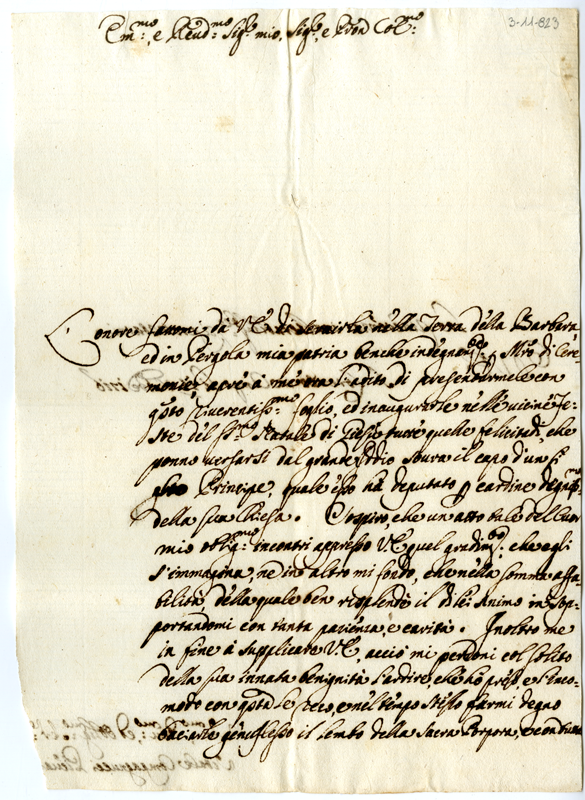 3-11-823
Em.mo, e Reud.mo Sig.r mio, Sig.r, e Pron Col.mo
L'onore fattomi da V.E. di servirla nella Terra della Barbara
ed in Pergola mia patria benche indegnam.te p Mro di Cere-
monie, apre à me ora l'adito di presentarmele con
q.sto riuerentiss.mo foglio, ed inaugurarle nelle vicine Fe-
ste del S.mo Natale di Giesù tutte quelle felicitadi, che
ponno versarsi dal grande Iddio soura il capo d'un
Principe, quale esso hà deputato p cardine degniss.mo
della sua Chiesa. Spero, che un atto tale del Cuor
mio oblig.mo incontri appresso V.E. quel gradim.to, che egli
s'immagina, ne in altro mi fondo, che nella somma affa-
bilità, della quale ben risplende il di lei Animo in sop-
portandomi con tanta pazienza, e carità. Inoltro me
in fine à supplicare V.E., acciò mi perdoni col solito
della sua innata benignità l'ardire, che hò preso e l'inco-
modo con q.sta le reco, e nel tempo stesso farmi degno
baciarle genuflesso il lembo della Sacra Porpora, e con